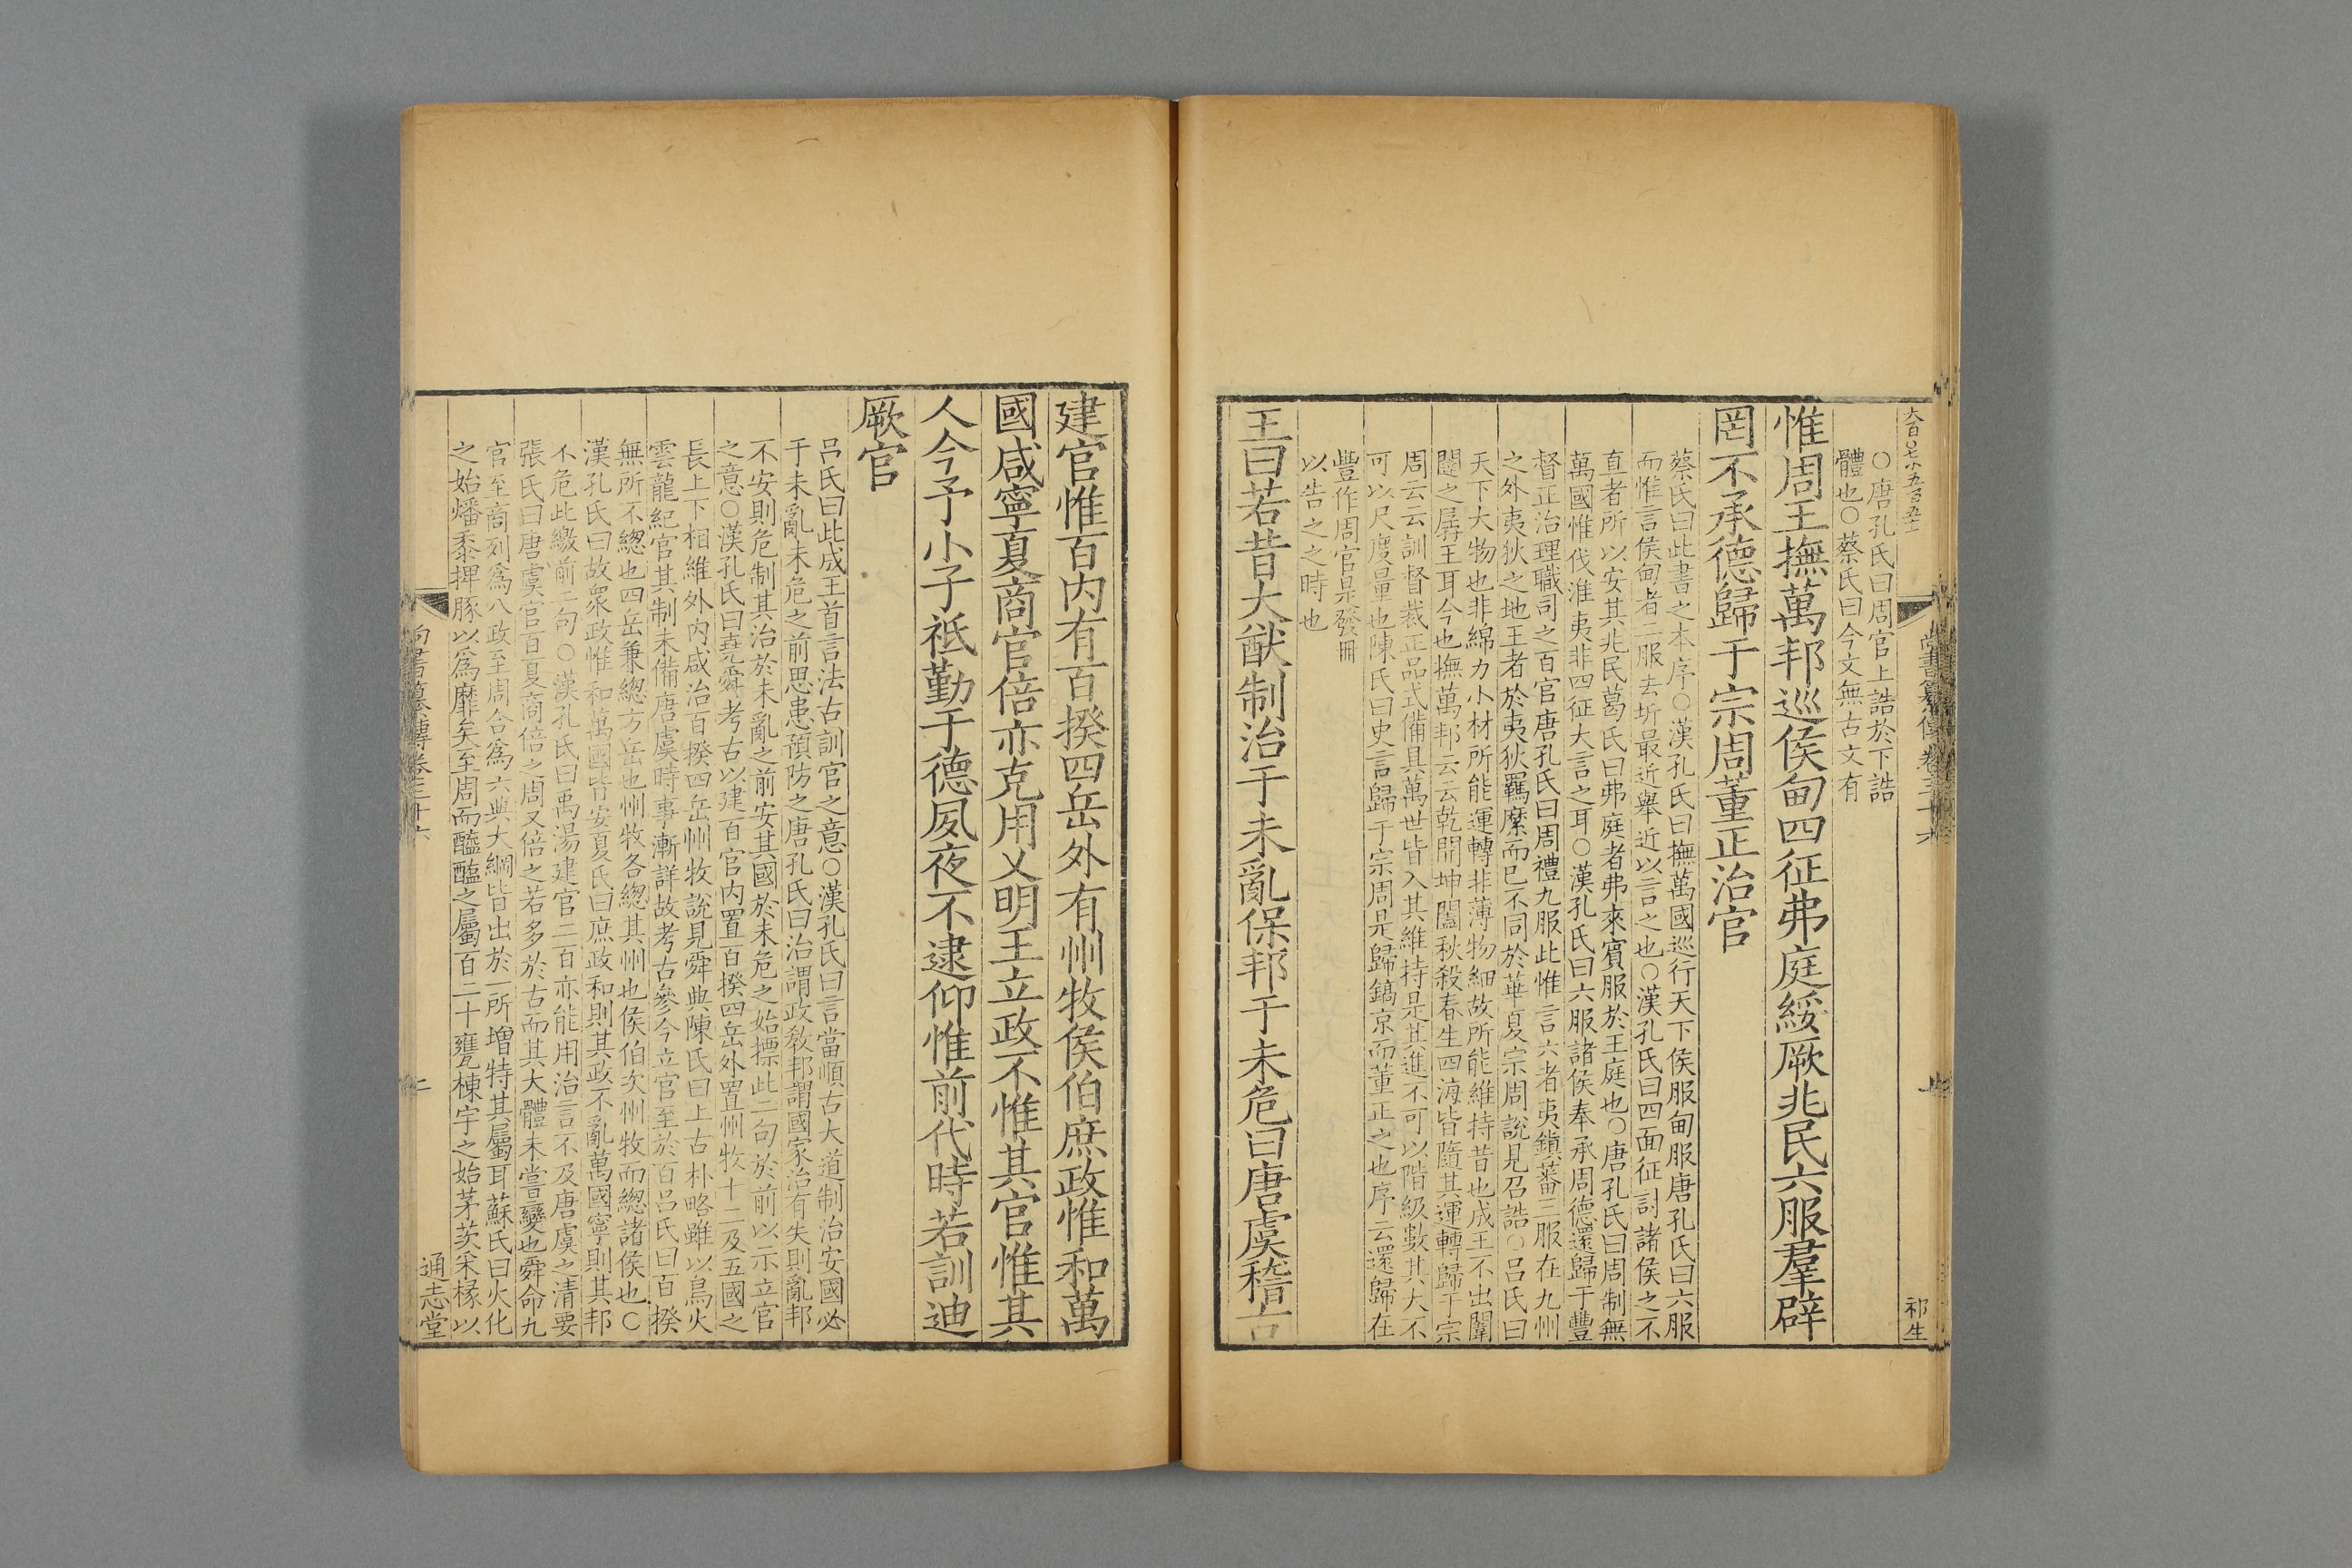 ○唐孔氏曰周官上誥於下誥
體也○蔡氏曰今文無古文有
惟周王撫萬邦巡侯甸四征弗庭綏厥兆民六服羣辟
罔不承德歸于宗周董正治官
蔡氏曰此書之本序○漢孔氏曰撫萬國巡行天下侯服甸服唐孔氏曰六服
而惟言侯甸者二服去圻最近舉近以言之也○漢孔氏曰四面征討諸侯之不
直者所以安其兆民葛氏曰弗庭者弗來賓服於王庭也○唐孔氏曰周制無
萬國惟伐淮夷非四征大言之耳○漢孔氏曰六服諸侯奉承周德還歸于豐
督正治理職司之百官唐孔氏曰周禮九服此惟言六者夷鎮蕃三服在九州
之外夷狄之地王者於夷狄羈縻而已不同於華夏宗周說見召誥○呂氏曰
天下大物也非綿力小材所能運轉非薄物細故所能維持昔也成王不出闈
闥之孱王耳今也撫萬邦云云乾開坤闔秋殺春生四海皆隨其運轉歸于宗
周云云訓督裁正品式備具萬世皆入其維持是其進不可以階級數其大不
可以尺度量也陳氏曰史言歸于宗周是歸鎬京而董正之也序云還歸在
豐作周官是發冊
以告之之時也
王曰若昔大猷制治于未亂保邦于未危曰唐虞稽古
尚書纂傳卷三十六
祁生
建官惟百內有百揆四岳外有州牧侯伯庶政惟和萬
國咸寧夏商官倍亦克用乂明王立政不惟其官惟其
人今予小子祗勤于德夙夜不逮仰惟前代時若訓迪
厥官
呂氏曰此成王首言法古訓官之意○漢孔氏曰言當順古大道制治安國必
于未亂未危之前思患預防之唐孔氏曰治謂政教邦謂國家治有失則亂邦
不安則危制其治於未亂之前安其國於未危之始摽此二句於前以示立官
之意○漢孔氏曰堯舜考古以建百官內置百揆四岳外置州牧十二及五國之
長上下相維外內咸治百揆四岳州牧說見舜典陳氏曰上古朴略雖以鳥火
雲龍紀官其制未備唐虞時事漸詳故考古參今立官至於百呂氏曰百揆
無所不總也四岳兼總方岳也州牧各總其州也侯伯次州牧而總諸侯也○
漢孔氏曰故眾政惟和萬國皆安夏氏曰庶政和則其政不亂萬國寧則其邦
不危此繳前二句○漢孔氏曰禹湯建官二百亦能用治言不及唐虞之清要
張氏曰唐虞官百夏商倍之周又倍之若多於古而其大體未嘗變也舜命九
官至商列為八政至周合為六典大綱皆出於一所增特其屬耳蘇氏曰火化
之始燔黍捭豚以為靡矣至周而醯醢之屬百二十甕棟宇之始茅茨采椽以
尚書纂傳卷三十六
二
通志堂